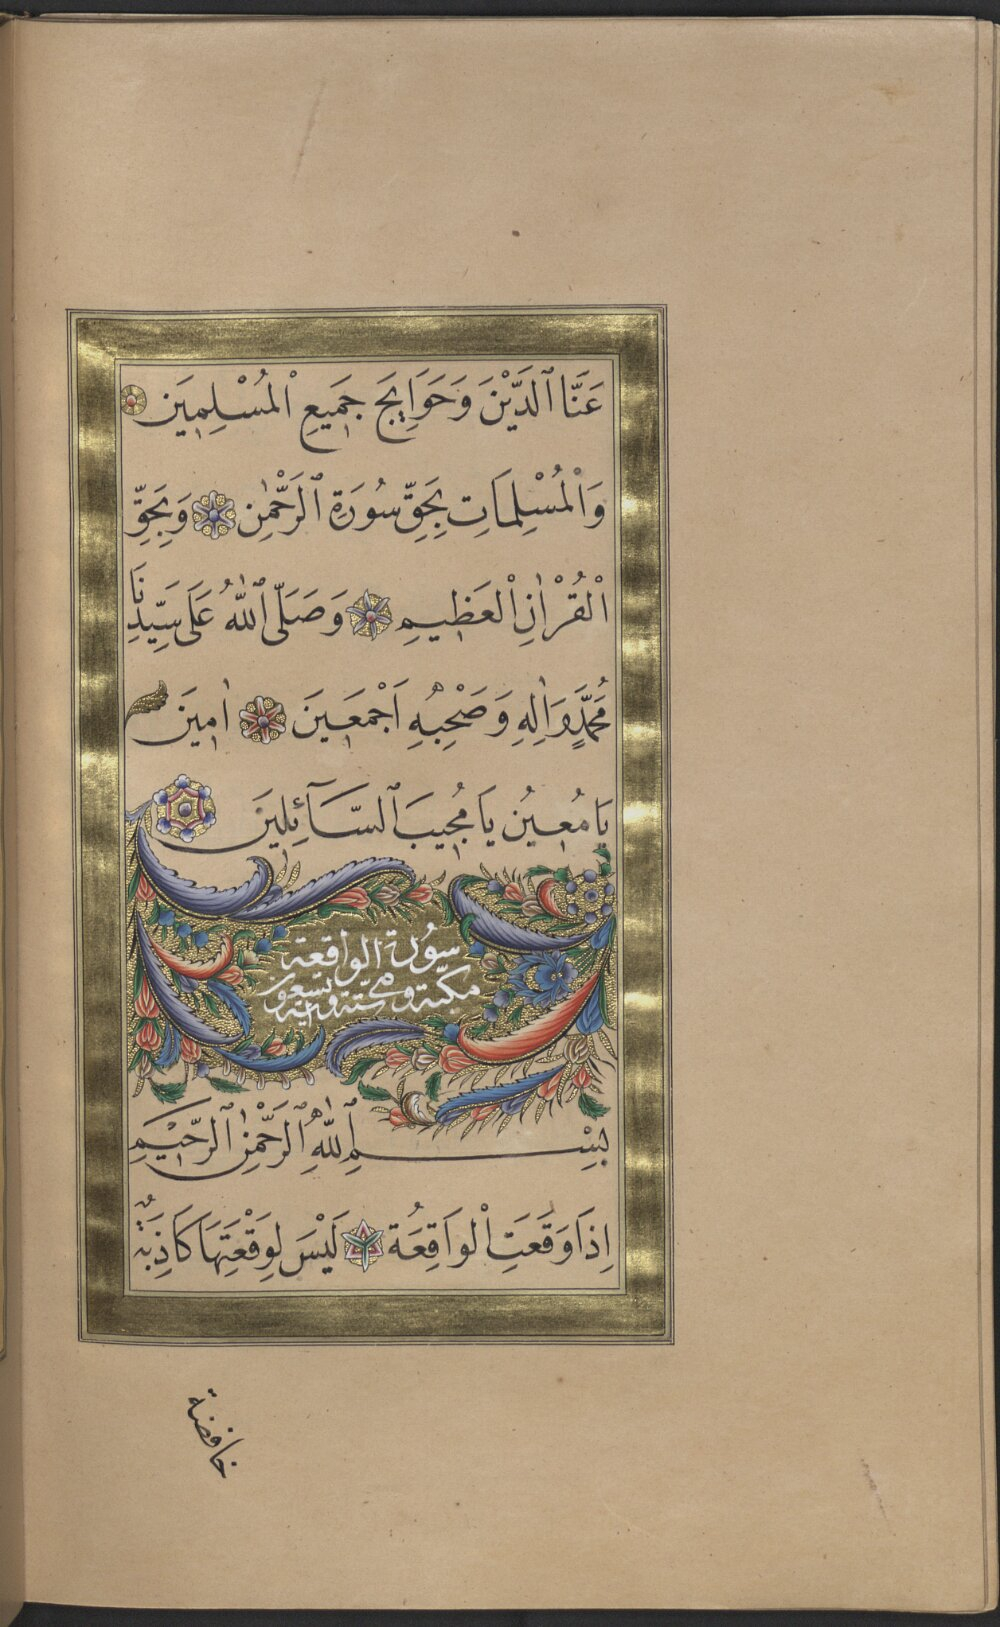 عَنَّا ٱلدَّيْنَ وَحَوَايِجَ جَمِيعِ ٱلْمُسْلِمِينَ
وَالْمُسْلِمَاتِ بِحَقِّ سُورَةِ ٱلرَّحْمٰنِ وَبِحَقِّ
الْقُرْاٰنِ الْعَظِيمِ وَصَلَّى ٱللّٰهُ عَلَى سَيِّدِنَا
مُحَمَّدٍ وَاٰلِهِ وَصَحْبِهِ اَجْمَعِينَ اٰمِينَ
يَا مُعِينُ يَا مُجِيبَ ٱلسَّآئِلِينَ
سورة الواقعة
مكية وهي ستة وتسعون اية
بِسْمِ ٱللّٰهِ ٱلرَّحْمٰنِ ٱلرَّحِيمِ
اِذَا وَقَعَتِ الْوَاقِعَةُ لَيْسَ لِوَقْعَتِهَا كَاذِبَةٌ
خافضة